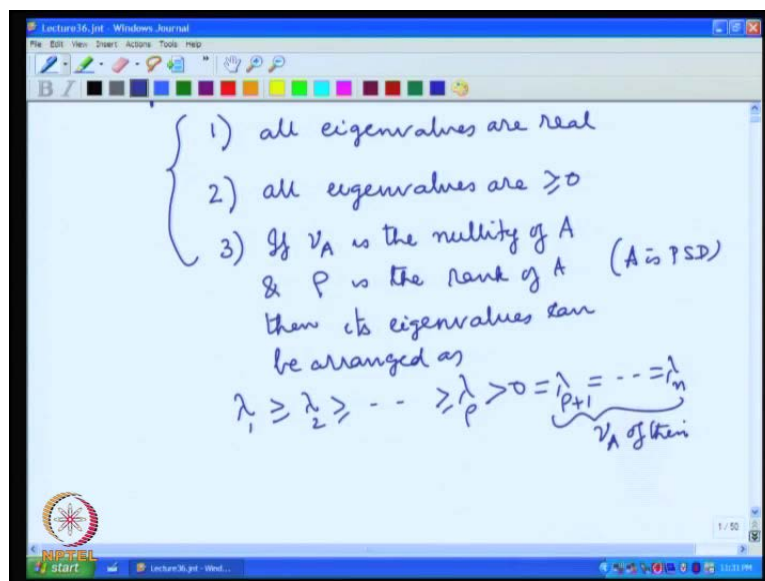 Lecture36.jnt - Windows Journal
File Edit View Insert Actions Tools Help
B I
1) all eigenvalues are real
2) all eigenvalues are ≥0
3) If ν_A is the nullity of A
& ρ is the rank of A (A is PSD)
then its eigenvalues can
be arranged as
λ_1 ≥ λ_2 ≥ - - ≥ λ_ρ > 0 = λ_{ρ+1} = - - - = λ_n
ν_A of them
1 / 50
NPTEL
start Lecture36.jnt - Wind... 12:31 PM